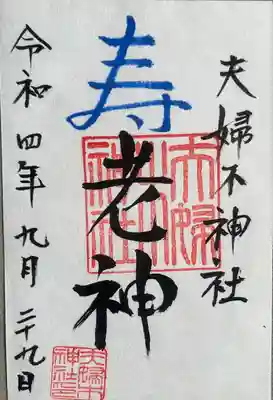 夫婦木神社
寿
老神
令和四年九月二十九日
夫婦木
神社